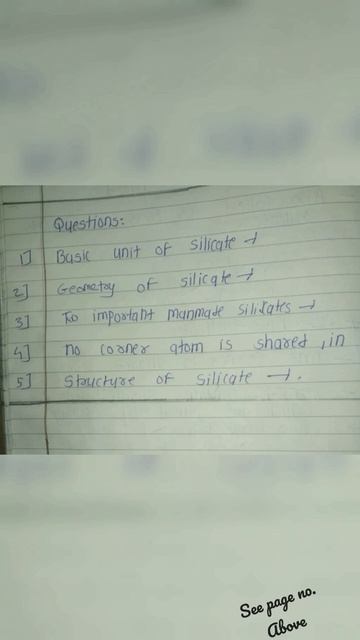 Questions:
1] Basic unit of silicate →
2] Geometry of silicate →
3] Two important manmade silicates →
4] no corner atom is shared, in
5] Structure of silicate →.
See page no.
Above